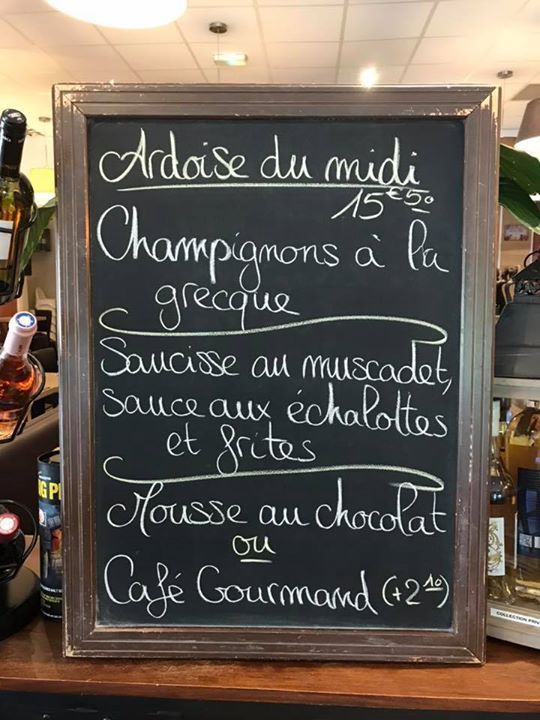 Ardoise du midi
15€50
Champignons à la
grecque
Saucisse au muscadet,
sauce aux échalottes
et frites
Mousse au chocolat
ou
Café Gourmand (+2 10)
COLLECTION PRIV
G P